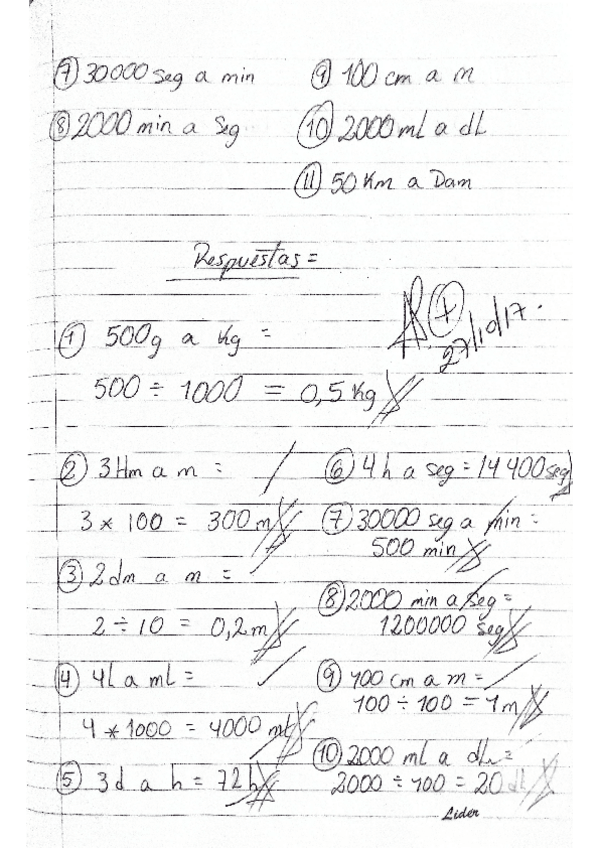 ⑦ 30000 seg a min
⑧ 2000 min a Seg
⑨ 100 cm a m
⑩ 2000 mL a dL
⑪ 50 Km a Dam
Respuestas =
27/10/17.
① 500g a Kg =
500 ÷ 1000 = 0,5 Kg
② 3Hm a m =
3 * 100 = 300 m
③ 2dm a m =
2 ÷ 10 = 0,2m
④ 4L a mL =
4 * 1000 = 4000 mL
⑤ 3d a h = 72h
⑥ 4h a seg = 14400seg
⑦ 30000 seg a min =
500 min
⑧ 2000 min a seg =
1200000 seg
⑨ 100 cm a m =
100 ÷ 100 = 1m
⑩ 2000 ml a dL =
2000 ÷ 100 = 20 dL
Lider